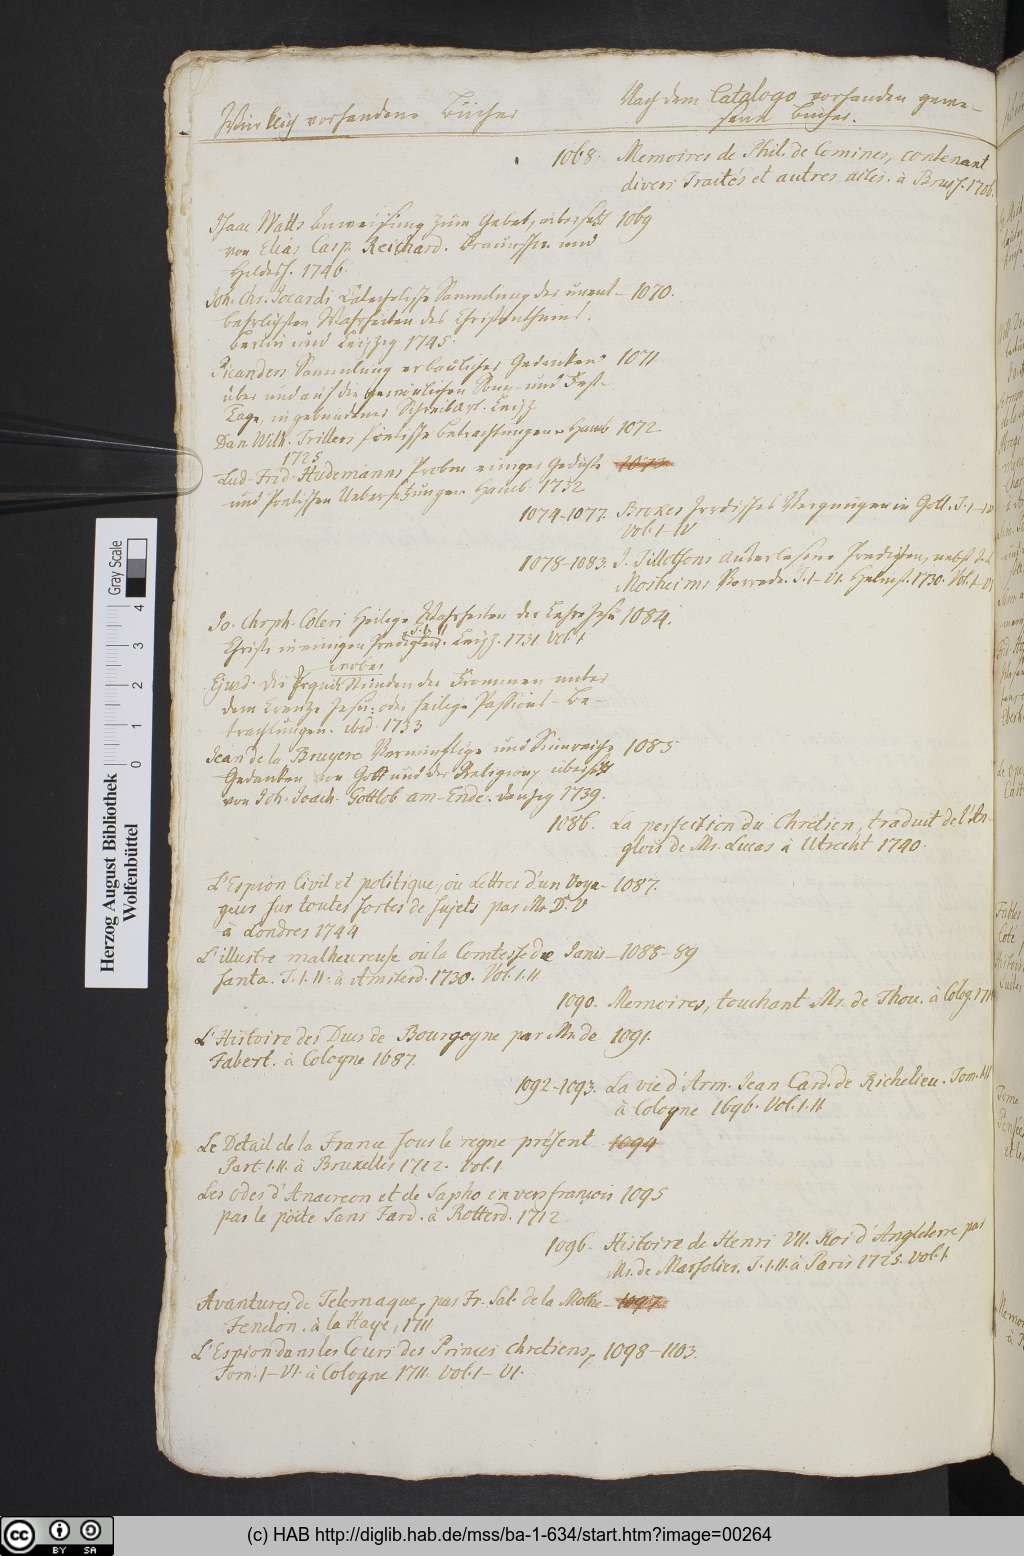 Würklich vorhandene Bücher
Nach dem Catalogo vorhanden gewe-
sene Bücher.
1068. Memoires de Phil. de Comines, contenant
divers Traités et autres actes. à Bruss. 1706.
Isaac Watts Anweisung zum Gebet, übersetzt 1069
von Elias Casp. Reichard. Braunschw. und
Hildesh. 1746.
Joh. Chr. Jocardi Catechetische Sammlung der unent- 1070.
behrlichsten Wahrheiten des Christenthums.
Berlin und Leipzig 1745.
Picanders Sammlung erbaulicher Gedanken 1071
über und auf die gewöhnlichen Sonn- und Fest-
Tage, in gebundener Schreibart. Leipz.
1725
Dan. Wilh. Trillers poetische Betrachtungen Hamb 1072
Lud. Frid. Hudemanns Proben einiger Gedichte 1073
und Poetischen Uebersetzungen Hamb. 1732
1074-1077. Brokes Irrdisches Vergnügen in Gott. T. I-IV
Vol. I-IV
1078-1083. J. Tillotsons auserlesene Predigten, nebst
Mosheims Vorrede. T. I-VI. Helmst. 1730. Vol. I-VI
Jo. Chrph. Coleri Heilige Wahrheiten der Lehre Jesu 1084.
Christi in einigen Predigten. Leipz. 1731 Vol. I
Ejusd. die Erquickstunden der Frommen unter
dem Creutze Jesu: oder heilige Passions-Be-
trachtungen. ibid 1733
Jean de la Bruyere Vernünftige und Sinnreiche 1085
Gedanken von Gott und der Religion, übersetzt
von Joh. Joach. Gottlob am-Ende. Danzig 1739.
1086. La perfection du Chrétien, traduit de l'An-
glois de Mr. Lucas à Utrecht 1740.
L'Espion Civil et politique, ou Lettres d'un Voya- 1087.
geur sur toutes sortes de sujets par Mr. D. V
à Londres 1744
L'illustre malheureuse ou la Comtesse de Janis- 1088-89
santa. T. I. II. à Amsterd. 1730. Vol. I. II
1090. Memoires, touchant Mr. de Thou. à Colog. 171
L'Histoire des Ducs de Bourgogne par Mr. de 1091.
Fabert. à Cologne 1687.
1092-1093. La vie d'Arm. Jean Card. de Richelieu. Tom. I-II
à Cologne 1696. Vol. I. II
Le Detail de la France sous le regne présent 1094
Part. I. II. à Bruxelles 1712. Vol. I
Les Odes d'Anacreon et de Sapho en vers françois 1095
par le pöete Sans Fard. à Rotterd. 1712
1096. Histoire de Henri VII. Roi d'Angleterre par
Mr. de Marsolier. T. I. II. à Paris 1725. Vol. I.
Avantures de Telemaque, par Fr. Sal. de la Mothe- 1097
Fenelon. à la Haye, 1711
L'Espion dans les Cours des Princes chretiens, 1098-1103.
Tom. I-VI. à Cologne 1711. Vol. I-VI.
Herzog August Bibliothek
Wolfenbüttel
0 1 2 3 4
Gray Scale
cc BY SA
(c) HAB http://diglib.hab.de/mss/ba-1-634/start.htm?image=00264